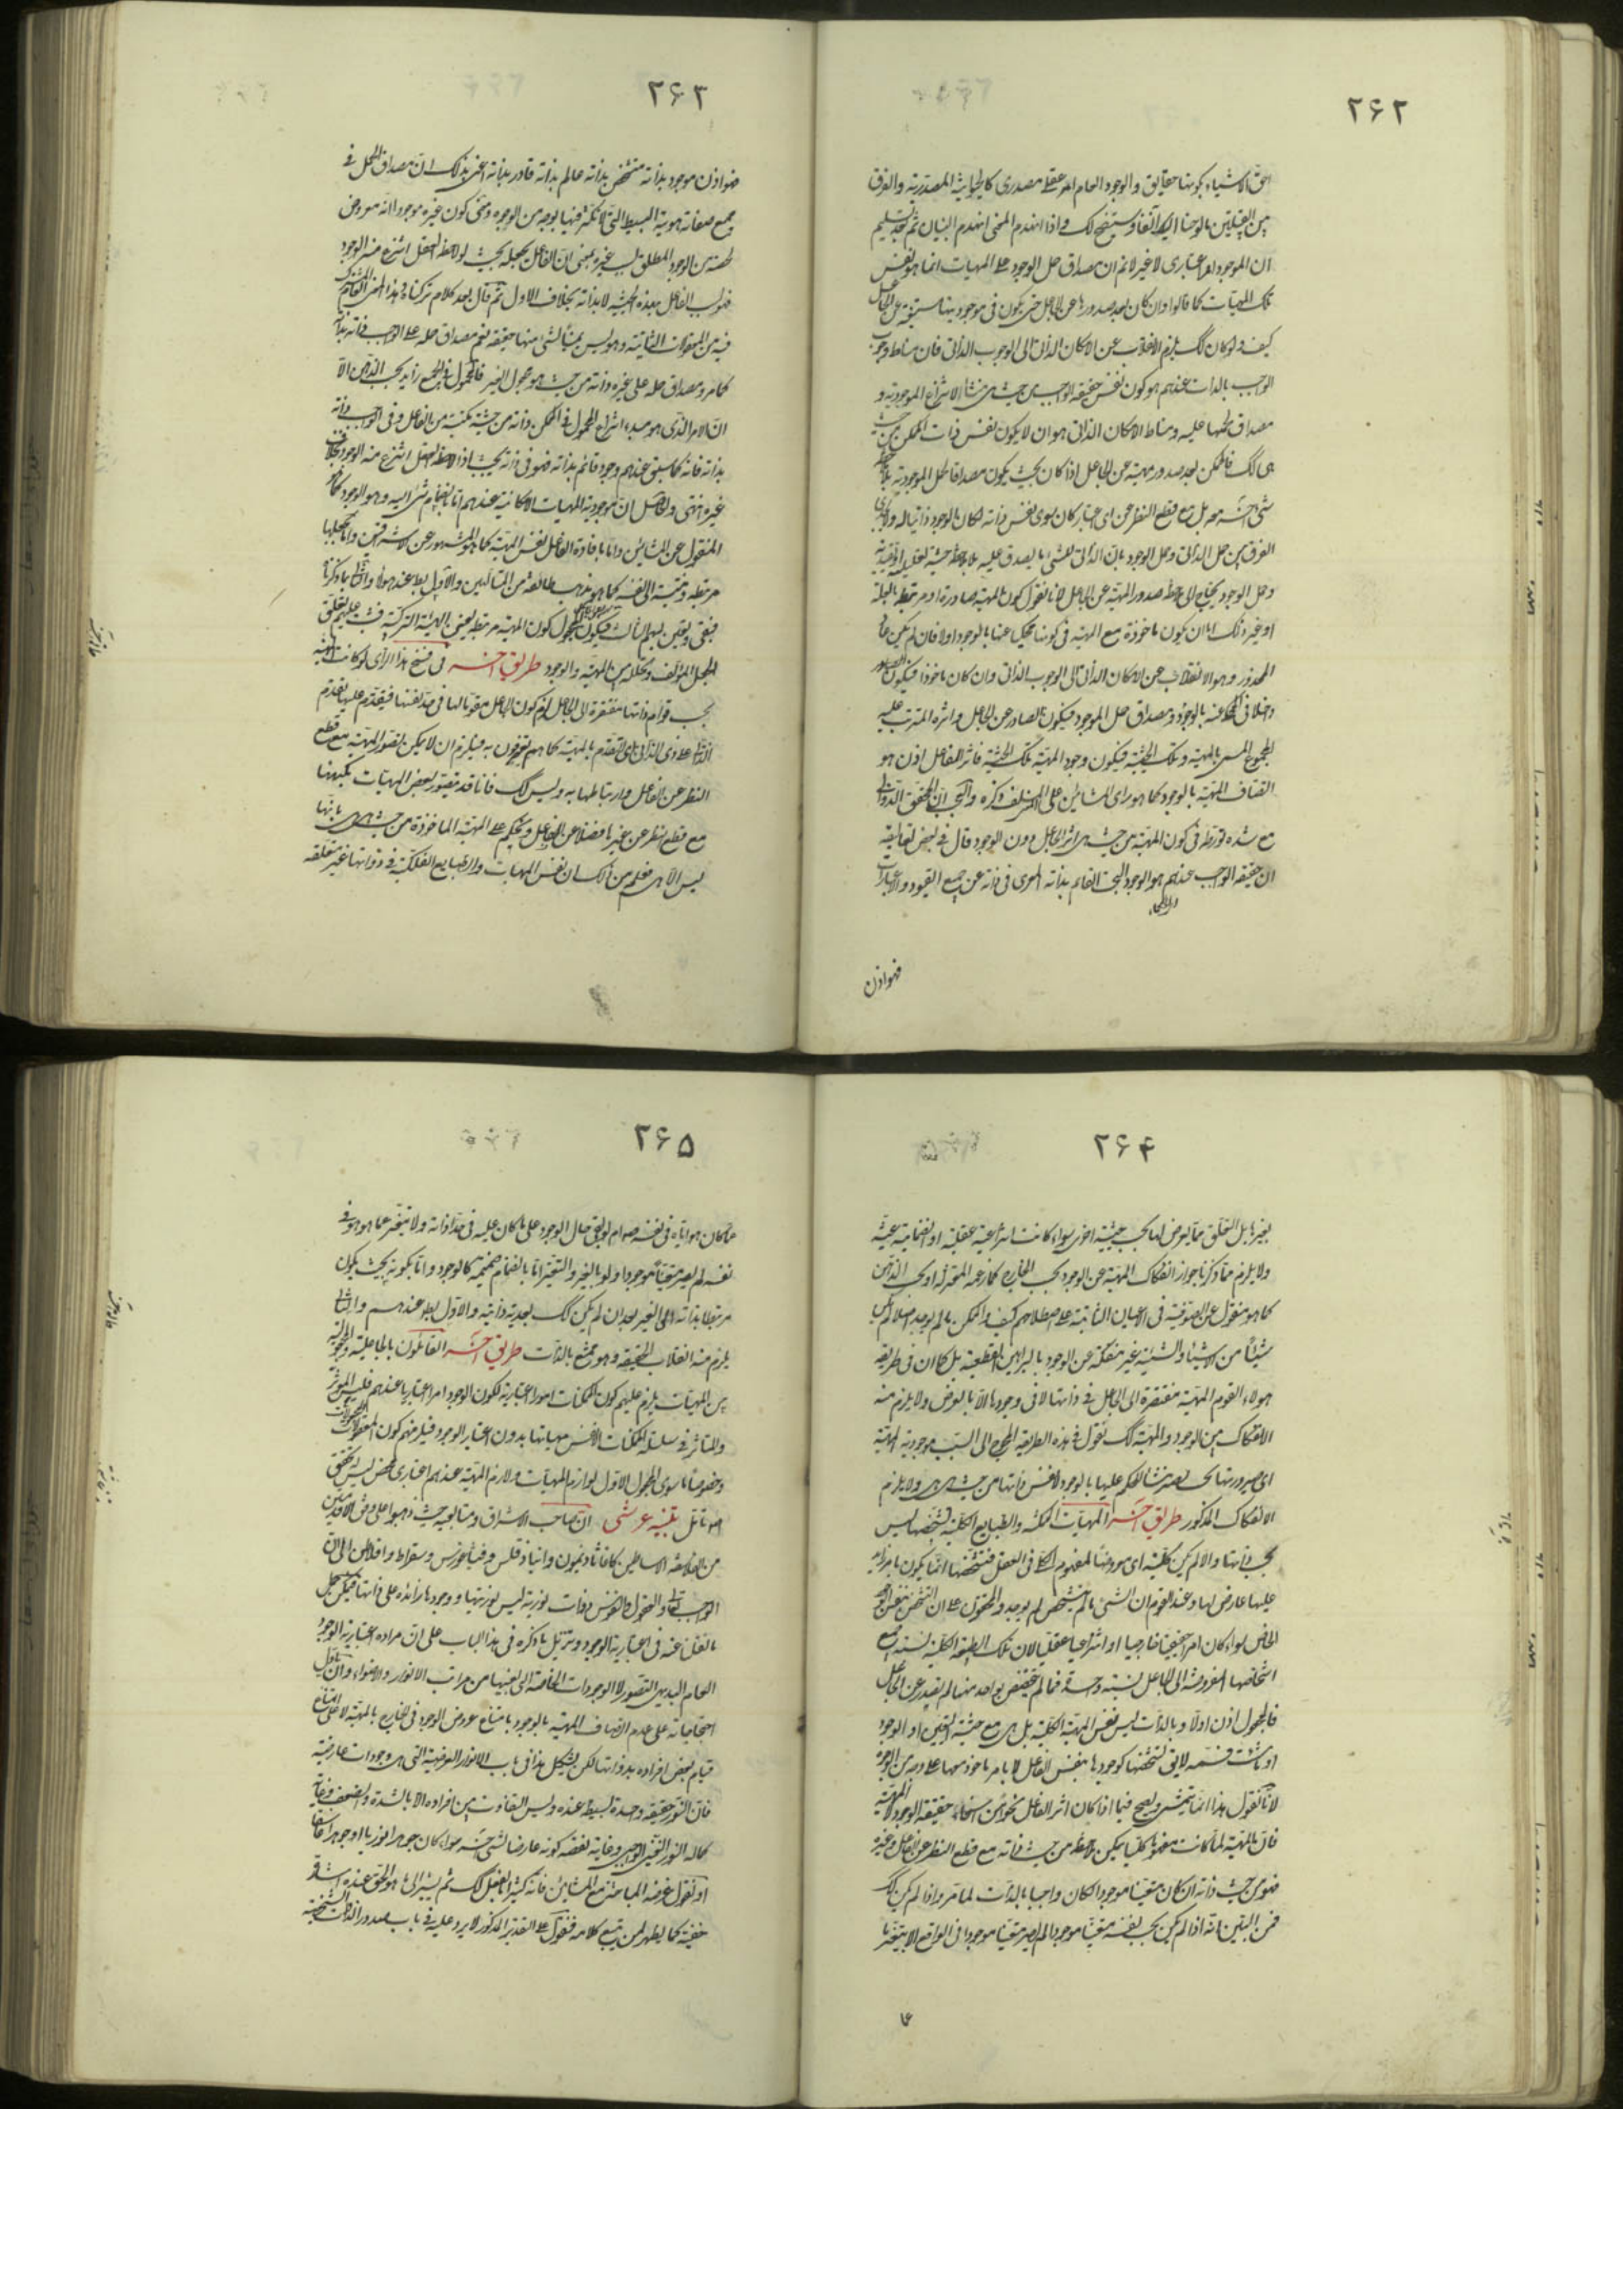 ٢۶٢
احق الاشياء بكونها حقايق والوجود العام امر عقلى مصدرى كالحيوانية المصدرية والفرق
بين القبيلتين مالوحنا اليك آنفا وسيتضح لك واذا انهدم المبنى انهدم البنيان ثم بعد تسليم
ان الموجود امر اعتبارى لا غير لا نم ان مصداق حمل الوجود على المهيات انما هو نفس
تلك المهيات كما قالوا وان كان بعد صدورها عن الجاعل حتى يكون فى موجوديتها مستغنية عن الجاعل
كيف ولو كان كك يلزم الانقلاب عن الامكان الذاتى الى الوجوب الذاتى فان مناط وجوب
الواجب بالذات عندهم هو كون نفس حقيقة الواجب من حيث هى منشأ لانتزاع الموجودية و
مصداق حملها عليه ومناط الامكان الذاتى هو ان لا يكون نفس ذات الممكن من حيث
هى كك فالممكن بعد صدور مهيته عن الجاعل اذا كان بحيث يكون مصداقا لحمل الموجودية بلا ملاحظة
شىء آخر معه بل مع قطع النظر عن اى اعتبار كان سوى نفس ذاته لكان الوجود ذاتيا له ولا يجدى
الفرق بين حمل الذاتى وحمل الوجود بان الذاتى للشىء ما يصدق عليه بلا ملاحظة حيثية تعليلية او تقييدية
وحمل الوجود يحتاج الى ملاحظة صدور المهية عن الجاعل لانا نقول كون المهية صادرة او مرتبطة بالعلة
او غير ذلك اما ان يكون ماخوذة مع المهية فى كونها محكيا عنها بالوجود اولا فان لم يكن عاد
المحذور وهو الانقلاب عن الامكان الذاتى الى الوجوب الذاتى وان كان ماخوذا فيكون الصدور
داخلا فى المحكى عنه بالوجود ومصداق حمل الموجود فيكون الصادر عن الجاعل واثره المترتب عليه
المجموع المسمى بالمهية وتلك الحيثية فيكون وجود المهية تلك الحيثية فاثر الفاعل اذن هو
اتصاف المهية بالوجود كما هو راى المشائين على المختلف ذكره والعجب ان المحقق الدوانى
مع شدة تورطه فى كون المهية من حيث هى اثر الجاعل دون الوجود قال فى بعض تعاليقه
ان حقيقة الواجب عندهم هو الوجود البحت القائم بذاته المعرى فى ذاته عن جميع القيود والاعتبارات
فهو اذن
٢۶٣
فهو اذن موجود بذاته متشخص بذاته عالم بذاته قادر بذاته اعنى بذلك ان مصداق الحمل فى
جميع صفاته هويته البسيطة التى لا تكثر فيها بوجه من الوجوه ومعنى كون غيره موجودا انه معروض
لحصة من الوجود المطلق بسبب غيره بمعنى ان الفاعل يجعله بحيث لو لاحظه العقل انتزع منه الوجود
فهو بسبب الفاعل بهذه الحيثية لا بذاته بخلاف الاول ثم قال بعد كلام تركناه وهذا المعنى العام المشترك
فيه من المعقولات الثانية وهو ليس عينا لشىء منها حقيقة نعم مصداق حمله على الواجب ذاته بذاته
كما مر ومصداق حمله على غيره ذاته من حيث هو مجعول الغير فالمحمول فى الجميع زايد بحسب الذهن الا
ان الامر الذى هو مبدء انتزاع المحمول فى الممكن ذاته من حيثية مكتسبة من الفاعل وفى الواجب ذاته
بذاته فانه كما سبق عندهم وجود قائم بذاته فهو فى ذاته بحيث اذا لاحظه العقل انتزع منه الوجود بخلاف
غيره انتهى والحاصل ان موجودية المهيات الامكانية عندهم اما بانضمام شىء اليه وهو الوجود كما هو
المنقول عن المشائين واما بافادة الفاعل نفس المهية كما هو المشهور عن الاشراقيين واما بجعلها
مرتبطة ومنتسبة الى نفسه كما هو مذهب طائفة من المتألهين والاول بط عند هولاء والثانى بما ذكرنا
فبقى وتعين لهم الثالث فيكون المجعول كون المهية مرتبطة يعنى الهيئة التركيبية فثبت عليهم تعلق
الجعل المؤلف وتخلله بين المهية والوجود طريق آخر فى فسخ هذا الراى لو كانت المهية
بحسب قوام ذاتها مفتقرة الى الجاعل لزم كون الجاعل مقوما لها فى حد نفسها فيتقدم عليها تقدم
الذاتى على ذى الذاتى اى التقدم بالمهية كما هم يعترفون به فيلزم ان لا يمكن تصور المهية مع قطع
النظر عن الفاعل وارتباطها به وليس كك فانا قد نتصور بعض المهيات بكنهها
مع قطع النظر عن غيرها فضلا عن الفاعل ونحكم على المهية الماخوذة من حيث هى هى بانها
ليس الا هى فعلم من ذلك ان نفس المهيات والطبايع الفلكية فى ذواتها غير متعلقة
٢۶۴
بغيرها بل التعلق مما يعرض لها بحسب حيثية اخرى سواء كانت انتزاعية عقلية او انضمامية عينية
ولا يلزم مما ذكرنا جواز انفكاك المهية عن الوجود بحسب الخارج كما زعمه المعتزلة او بحسب الذهن
كما هو منقول عن الصوفية فى الاعيان الثابتة على اصطلاحهم كيف والممكن ما لم يوجد اصلا لم يكن
شيئا من الاشياء والشيئية غير منفكة عن الوجود بالبراهين القطعية بل كما ان فى طريقة
هولاء القوم المهية مفتقرة الى الجاعل فى ذاتها لا فى وجودها الا بالعرض ولا يلزم منه
الانفكاك بين الوجود والمهية كك نقول فى هذه الطريقة المحوج الى السبب موجودية المهية
اى صيرورتها بحيث تصير منشأ للحكم عليها بالوجود لا نفس ذاتها من حيث هى هى ولا يلزم
الانفكاك المذكور طريق آخر المهيات الممكنة والطبايع الكلية تشخصها ليس
بحسب ذاتها والا لم يكن كلية اى معروضا لمفهوم الكلى فى العقل فتشخصها انما يكون بامر زايد
عليها عارض لها وعند القوم ان الشىء ما لم يتشخص لم يوجد والمحققون على ان التشخص بنفس الوجود
الخاص سواء كان امرا حقيقيا خارجيا او انتزاعيا عقليا لان تلك الطبيعة الكلية نسبة جميع
اشخاصها المفروضة الى الجاعل نسبة واحدة فما لم يتخصص بواحد منها لم يصدر عن الجاعل
فالمجعول اذن اولا وبالذات ليس نفس المهية الكلية بل هى مع حيثية التعين او الوجود
او ما شئت فسمه لا يق تشخصها كوجودها بنفس الفاعل لا بامر ماخوذ معها على وجه من الوجوه
لانا نقول هذا انما يتمشى ويصح فيما اذا كان اثر الفاعل نحوا من انحاء حقيقة الوجود لا المهية
فان المهية لما كانت مفهوما كليا يمكن ملاحظته من حيث ذاته مع قطع النظر عن الفاعل وغيره
فهو من حيث ذاته ان كان متعينا موجودا لكان واجبا بالذات لما مر واذا لم يكن كك
فمن البين انه اذا لم يكن بحسب نفسه متعينا موجودا لم يصر متعينا موجودا فى الواقع الا بتغيره
عما
٢۶۵
عما كان هو اياه فى نفسه ضرورة انه لو بقى حال الوجود على ما كان عليه فى حد ذاته ولا يتغير عما هو هو فى
نفسه لم يصر متعينا موجودا ولو بالغير والتغير اما بانضمام ضميمة كالوجود واما بكونه بحيث يكون
مرتبطا بذاته الى الغير بعد ان لم يكن كك بعدية ذاتية والاول بط عندهم والثانى
يلزم منه انقلاب الحقيقة وهو ممتنع بالذات طريق آخر القائلون بالجاعلية والمجعولية
بين المهيات يلزم عليهم كون الممكنات امورا اعتبارية لكون الوجود امرا اعتباريا عندهم فليس المؤثر
والمتاثر فى سلسلة الممكنات الا نفس مهياتها بدون اعتبار الوجود فيلزمهم كون المجعولات
وخصوصا ما سوى المجعول الاول لوازم المهيات ولازم المهية عندهم اعتبارى محض ليس له تحقق
اصلا تامل تنبيه عرشى ان صاحب الاشراق ومتابعيه حيث ذهبوا على وفق الاقدمين
من الفلاسفة الاساطين كاغاثاذيمون وانباذقلس وفيثاغورس وسقراط وافلاطن الى ان
الواجب تعالى والعقول والنفوس ذوات نورية ليس نوريتها ووجودها زائدة على ذاتها فيمكن حمل
ما نقلنا عنه فى اعتبارية الوجود وتنزيل ما ذكره فى هذا الباب على ان مراده اعتبارية الوجود
العام البديهى التصور لا الوجودات الخاصة التى بعينها من مراتب الانوار والاضواء وان ناول
احتجاجاته على عدم اتصاف المهية بالوجود بامتناع عروض الوجود فى الخارج بالمهية لا على امتناع
قيام بعض افراده بذواتها لكن يشكل هذا فى باب الانوار العرضية التى هى وجودات عارضية
فان النور حقيقة واحدة بسيطة عنده وليس التفاوت بين افراده الا بالشدة والضعف وغاية
كماله النور الغنى الواجبى وغاية نقصه كونه عارضا لشىء آخر سواء كان جوهرا نوريا او جوهرا غاسقا
او نقول غرضه المباحثة مع المشائين فانه كثيرا ما يفعل كك ثم يشير الى ما هو الحق عنده اشارة
خفية كما يظهر لمن تتبع كلامه فنقول على التقدير المذكور لا يرد عليه فى باب صدور الذات الشخصية